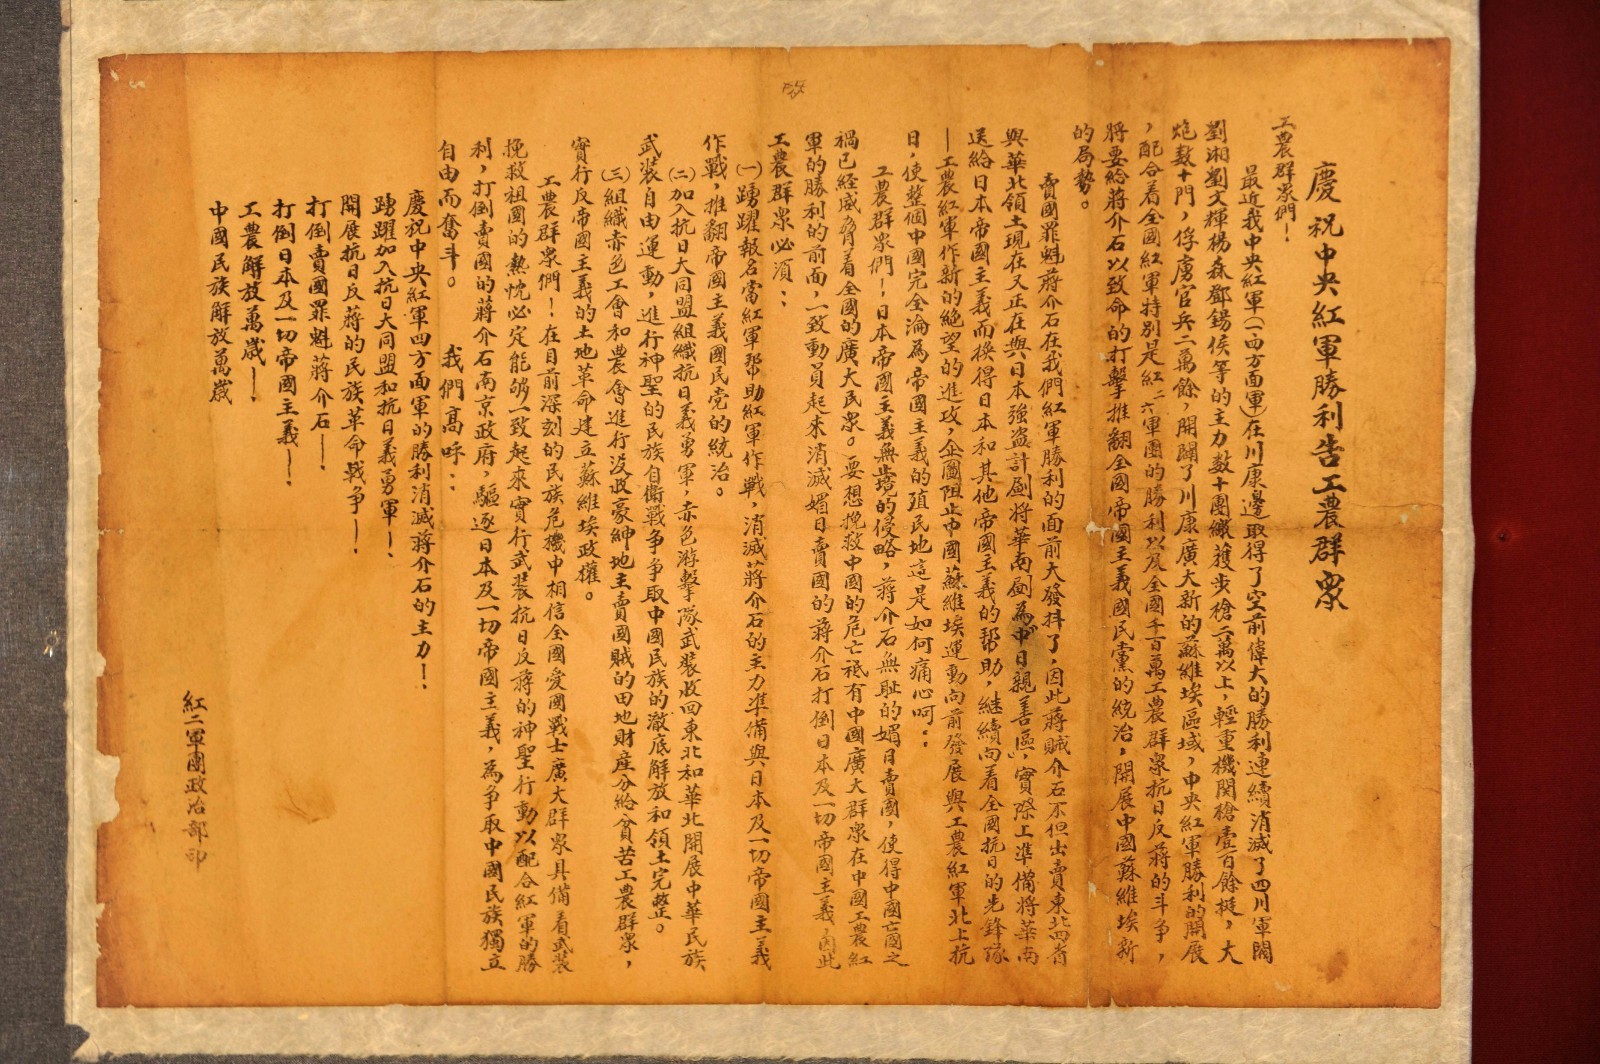 慶祝中央紅軍勝利告工農群眾
工農群眾們！
最近我中央紅軍（一四方面軍）在川康邊取得了空前偉大的勝利連續消滅了四川軍閥
劉湘劉文輝楊森鄧錫侯等的主力数十團繳獲步槍二萬以上，輕重機関槍壹百餘挺，大
炮数十門，俘虜官兵二萬餘，開闢了川康廣大新的蘇維埃區域，中央紅軍勝利的開展
，配合着全國紅軍特别是紅二六軍團的勝利以及全國千百萬工農群眾抗日反蔣的斗争，
將要給蔣介石以致命的打擊推翻全國帝國主義國民黨的統治，開展中國蘇維埃新
的局勢。
賣國罪魁蔣介石在我們紅軍勝利的面前大發抖了，因此蔣賊介石不但出賣東北四省
與華北領土現在又正在與日本強盗計劃將華南劃為“中日親善區”，實際上準備將華南
送給日本帝國主義而换得日本和其他帝國主義的帮助，継續向着全國抗日的先鋒隊
—工農紅軍作新的絶望的進攻，企圖阻止中國蘇維埃運動向前發展與工農紅軍北上抗
日，使整個中國完全淪為帝國主義的殖民地這是如何痛心呵：
工農群眾們！日本帝國主義無境的侵略，蔣介石無恥的媚日賣國，使得中國亡國之
禍已経威脅着全國的廣大民眾。要想挽救中國的危亡祇有中國廣大群眾在中國工農紅
軍的勝利的前面，一致動員起來消滅媚日賣國的蔣介石打倒日本及一切帝國主義，因此
工農群眾必須：
（一）踴躍報名當紅軍帮助紅軍作戰，消滅蔣介石的主力準備與日本及一切帝國主義
作戰，推翻帝國主義國民党的統治。
（二）加入抗日大同盟組織抗日義勇軍，赤色游擊隊武裝收回東北和華北開展中華民族
武裝自由運動，進行神聖的民族自衛戰争争取中國民族的澈底解放和領土完整。
（三）組織赤色工會和農會進行没收豪紳地主賣國賊的田地財産分給貧苦工農群眾，
實行反帝國主義的土地革命建立蘇維埃政權。
工農群眾們！在目前深刻的民族危機中相信全國愛國戰士廣大群眾具備着武裝
挽救祖國的熱忱必定能够一致起來實行武裝抗日反蔣的神聖行動以配合紅軍的勝
利，打倒賣國的蔣介石南京政府，驅逐日本及一切帝國主義，為争取中國民族獨立
自由而奮斗。 我們高呼：
慶祝中央紅軍四方面軍的勝利消滅蔣介石的主力！
踴躍加入抗日大同盟和抗日義勇軍！
開展抗日反蔣的民族革命戰争！
打倒賣國罪魁蔣介石！
打倒日本及一切帝國主義！
工農解放萬歲！
中國民族解放萬歲
紅二軍團政治部印